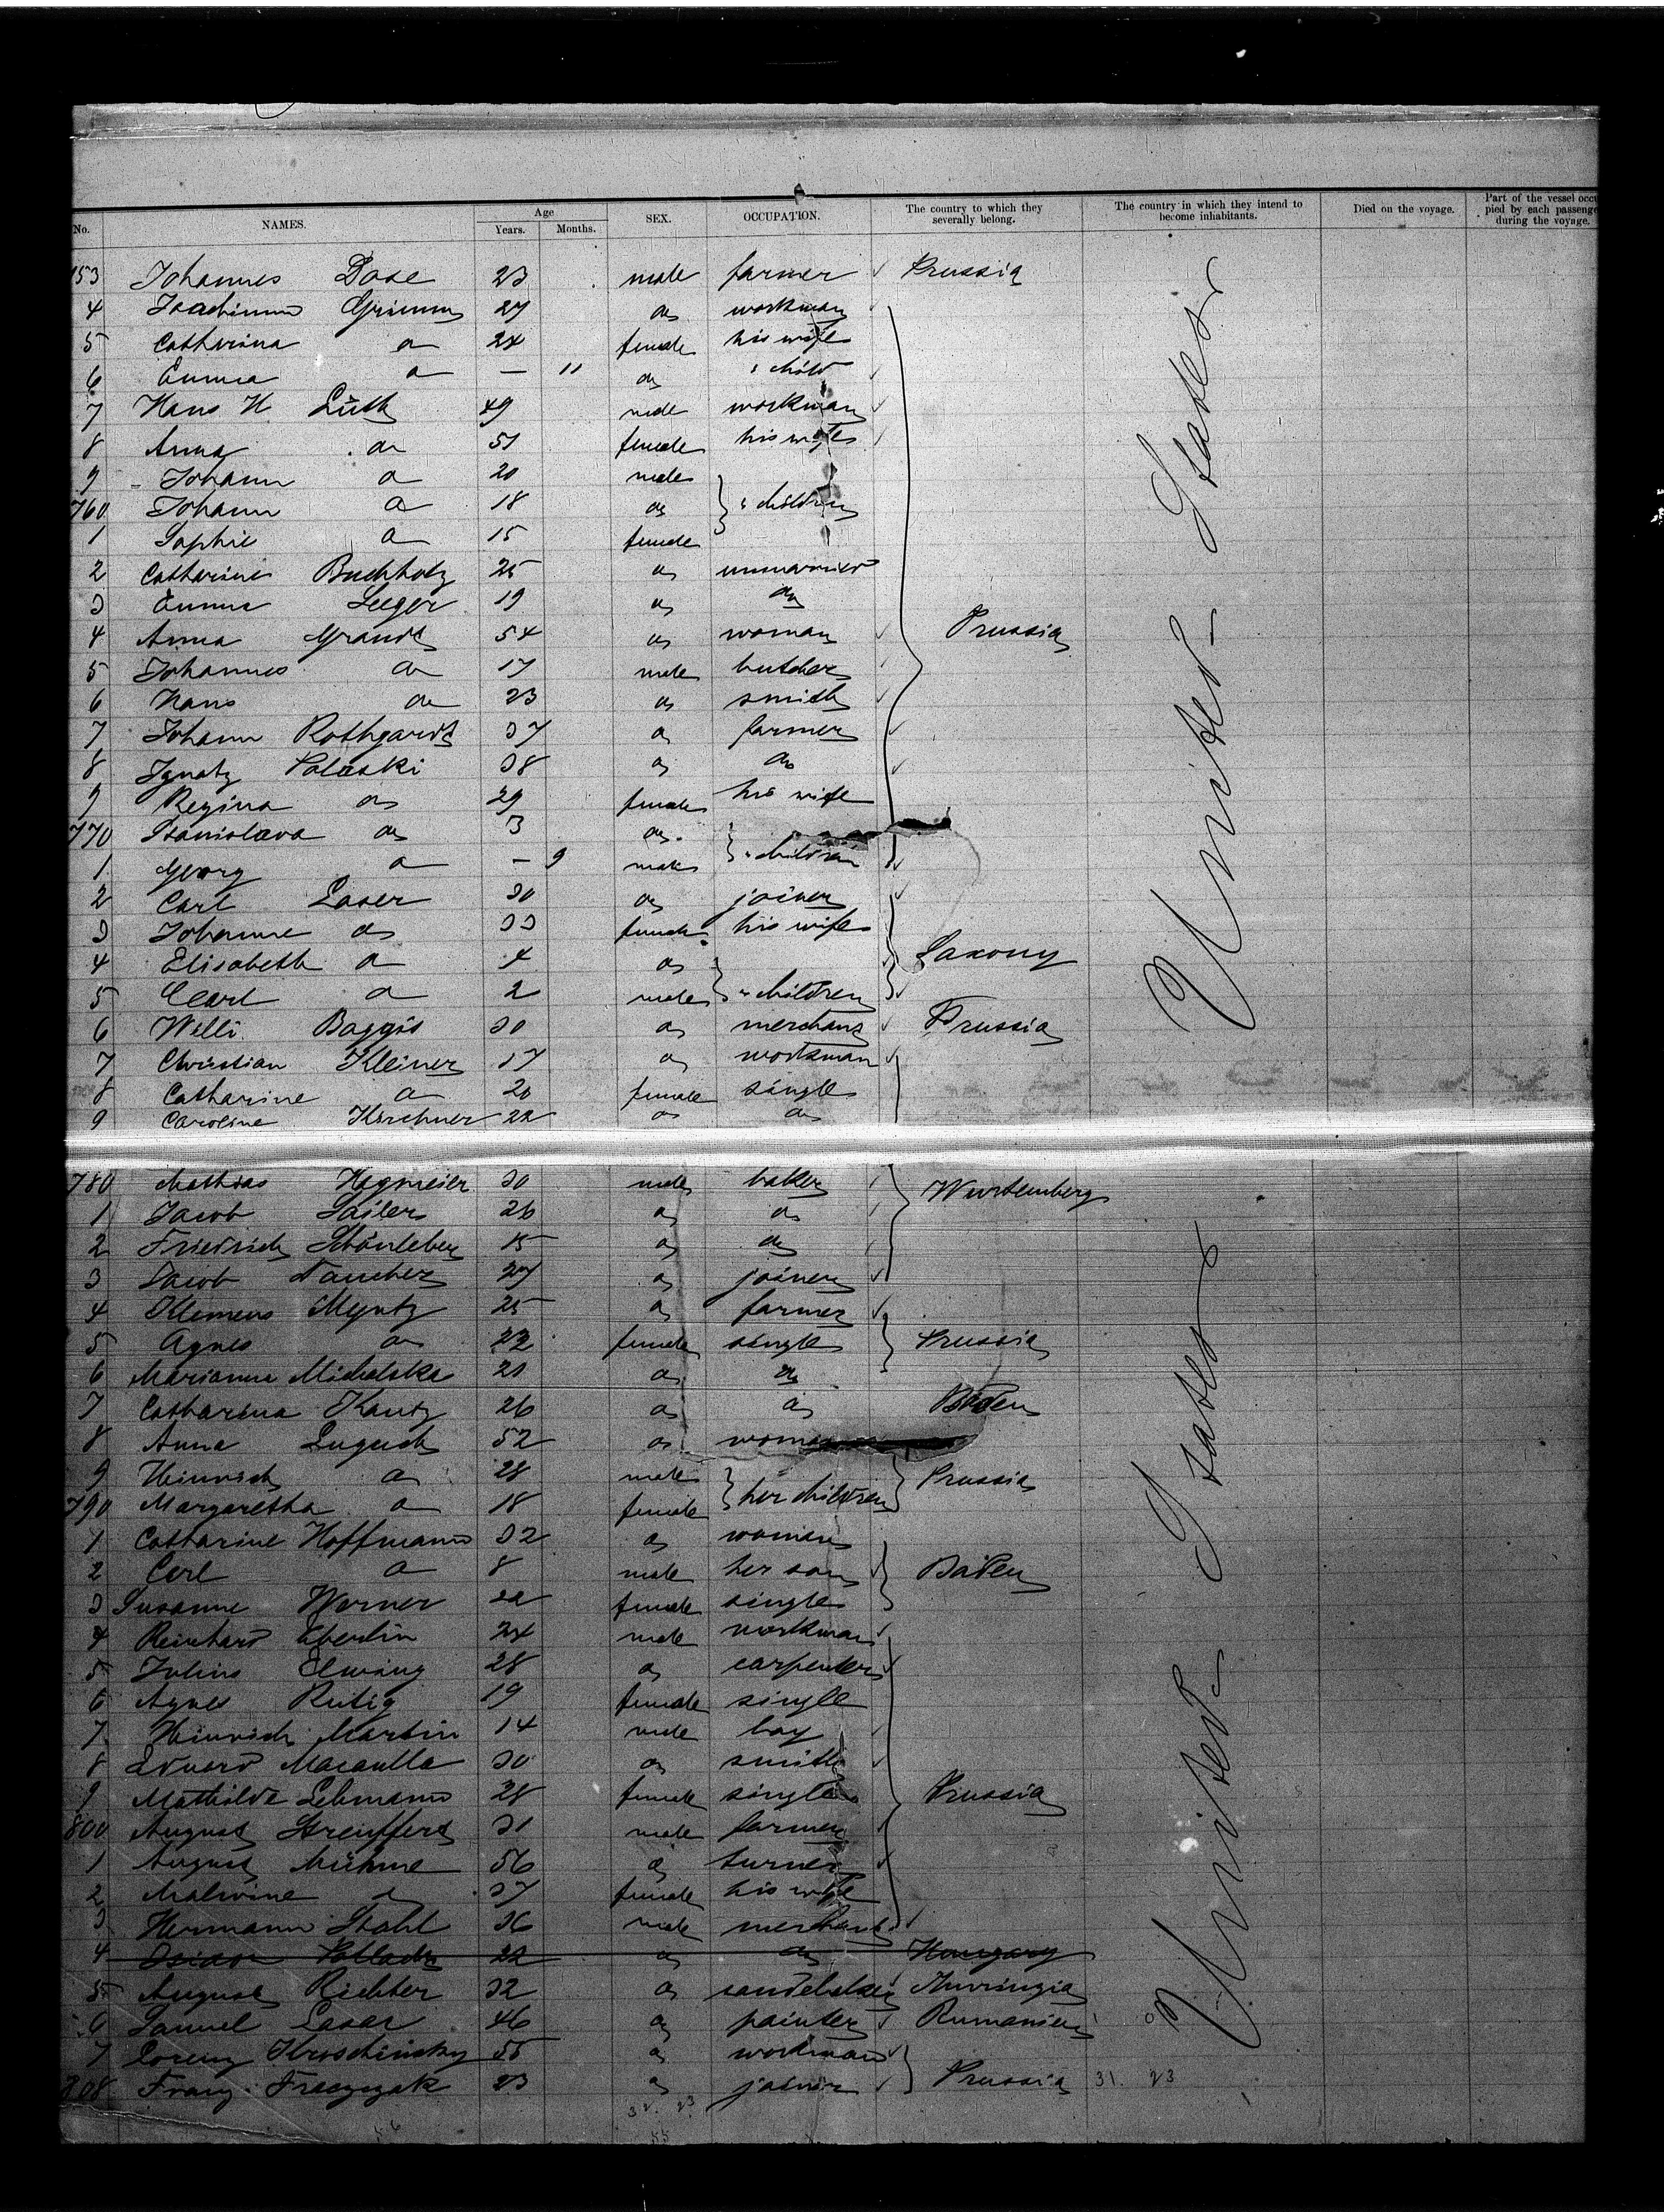 No. NAMES. Age Years. Months. SEX. OCCUPATION. The country to which they severally belong. The country in which they intend to become inhabitants. Died on the voyage. Part of the vessel occupied by each passenger during the voyage.
753 Johannes Dose 23 male farmer Prussia
4 Joachim Grimm 27 do workman
5 Catharina do 24 female his wife
6 Emma do — 11 do " child
7 Hans H Lüth 49 male workman
8 Anna do 51 female his wife
9 Johann do 20 male
760 Johann do 18 do " children
1 Sophie do 15 female
2 Catharine Buchholz 25 do unmarried
3 Emma Seeger 19 do do
4 Anna Grandt 54 do woman Prussia
5 Johannes do 17 male butcher
6 Hans do 23 do smith
7 Johann Rothgardt 37 do farmer
8 Ignatz Polaski 38 do do
9 Regina do 29 female his wife
770 Stanislava do 3 do
1 Georg do — 9 male " children
2 Carl Laser 30 do joiner
3 Johanne do 33 female his wife
4 Elisabeth do 4 do Saxony
5 Carl do 2 male " children
6 Willi Baggis 30 do merchant Prussia
7 Christian Kleiner 17 do workman
8 Catharine do 20 female single
9 Caroline Kirchner 22 do do
780 Mathias Hagmeier 30 male baker Wurtemberg
1 Jacob Sailer 26 do do
2 Friedrich Schönleber 15 do do
3 Jacob Taucher 27 do joiner
4 Klemens Myntz 25 do farmer
5 Agnes do 22 female single Prussia
6 Marianna Michalska 21 do do
7 Catharina Kautz 26 do do Baden
8 Anna 52 do woman
9 Heinrich do 28 male Prussia
790 Margaretha do 18 female her children
1 Catharine Hoffmann 32 do woman
2 Carl do 8 male her son Baden
3 Susanne Werner 22 female single
4 Reinhard Eberlin 24 male workman
5 Julius Elwing 28 do carpenter
6 Agnes Rutig 19 female single
7 Heinrich Martin 14 male boy
8 Eduard Macaulla 30 do smith
9 Mathilde Lehmann 28 female single Prussia
800 August Streuffert 31 male farmer
1 August Mühme 56 do turner
2 Malwine do 37 female his wife
3 Hermann Stahl 36 male merchant
4 Isidor Pollack 22 do do Hungary
5 August Richter 32 do Thuringia
6 Samuel Lazar 46 do painter Rumanien
7 Lorenz 55 do workman
808 Franz 23 do joiner Prussia 31. 23
United States
United States